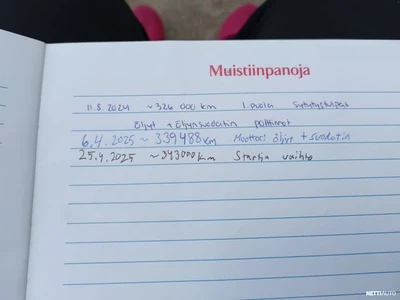 Muistiinpanoja
11.8.2024 ~326 000 km 1.puola sytytystulpat
öljyt + öljynsuodatin polttimot
6.4.2025 ~ 339488 km Moottori öljyt + suodatin
25.4.2025 ~343000km Startin vaihto
NETTIAUTO